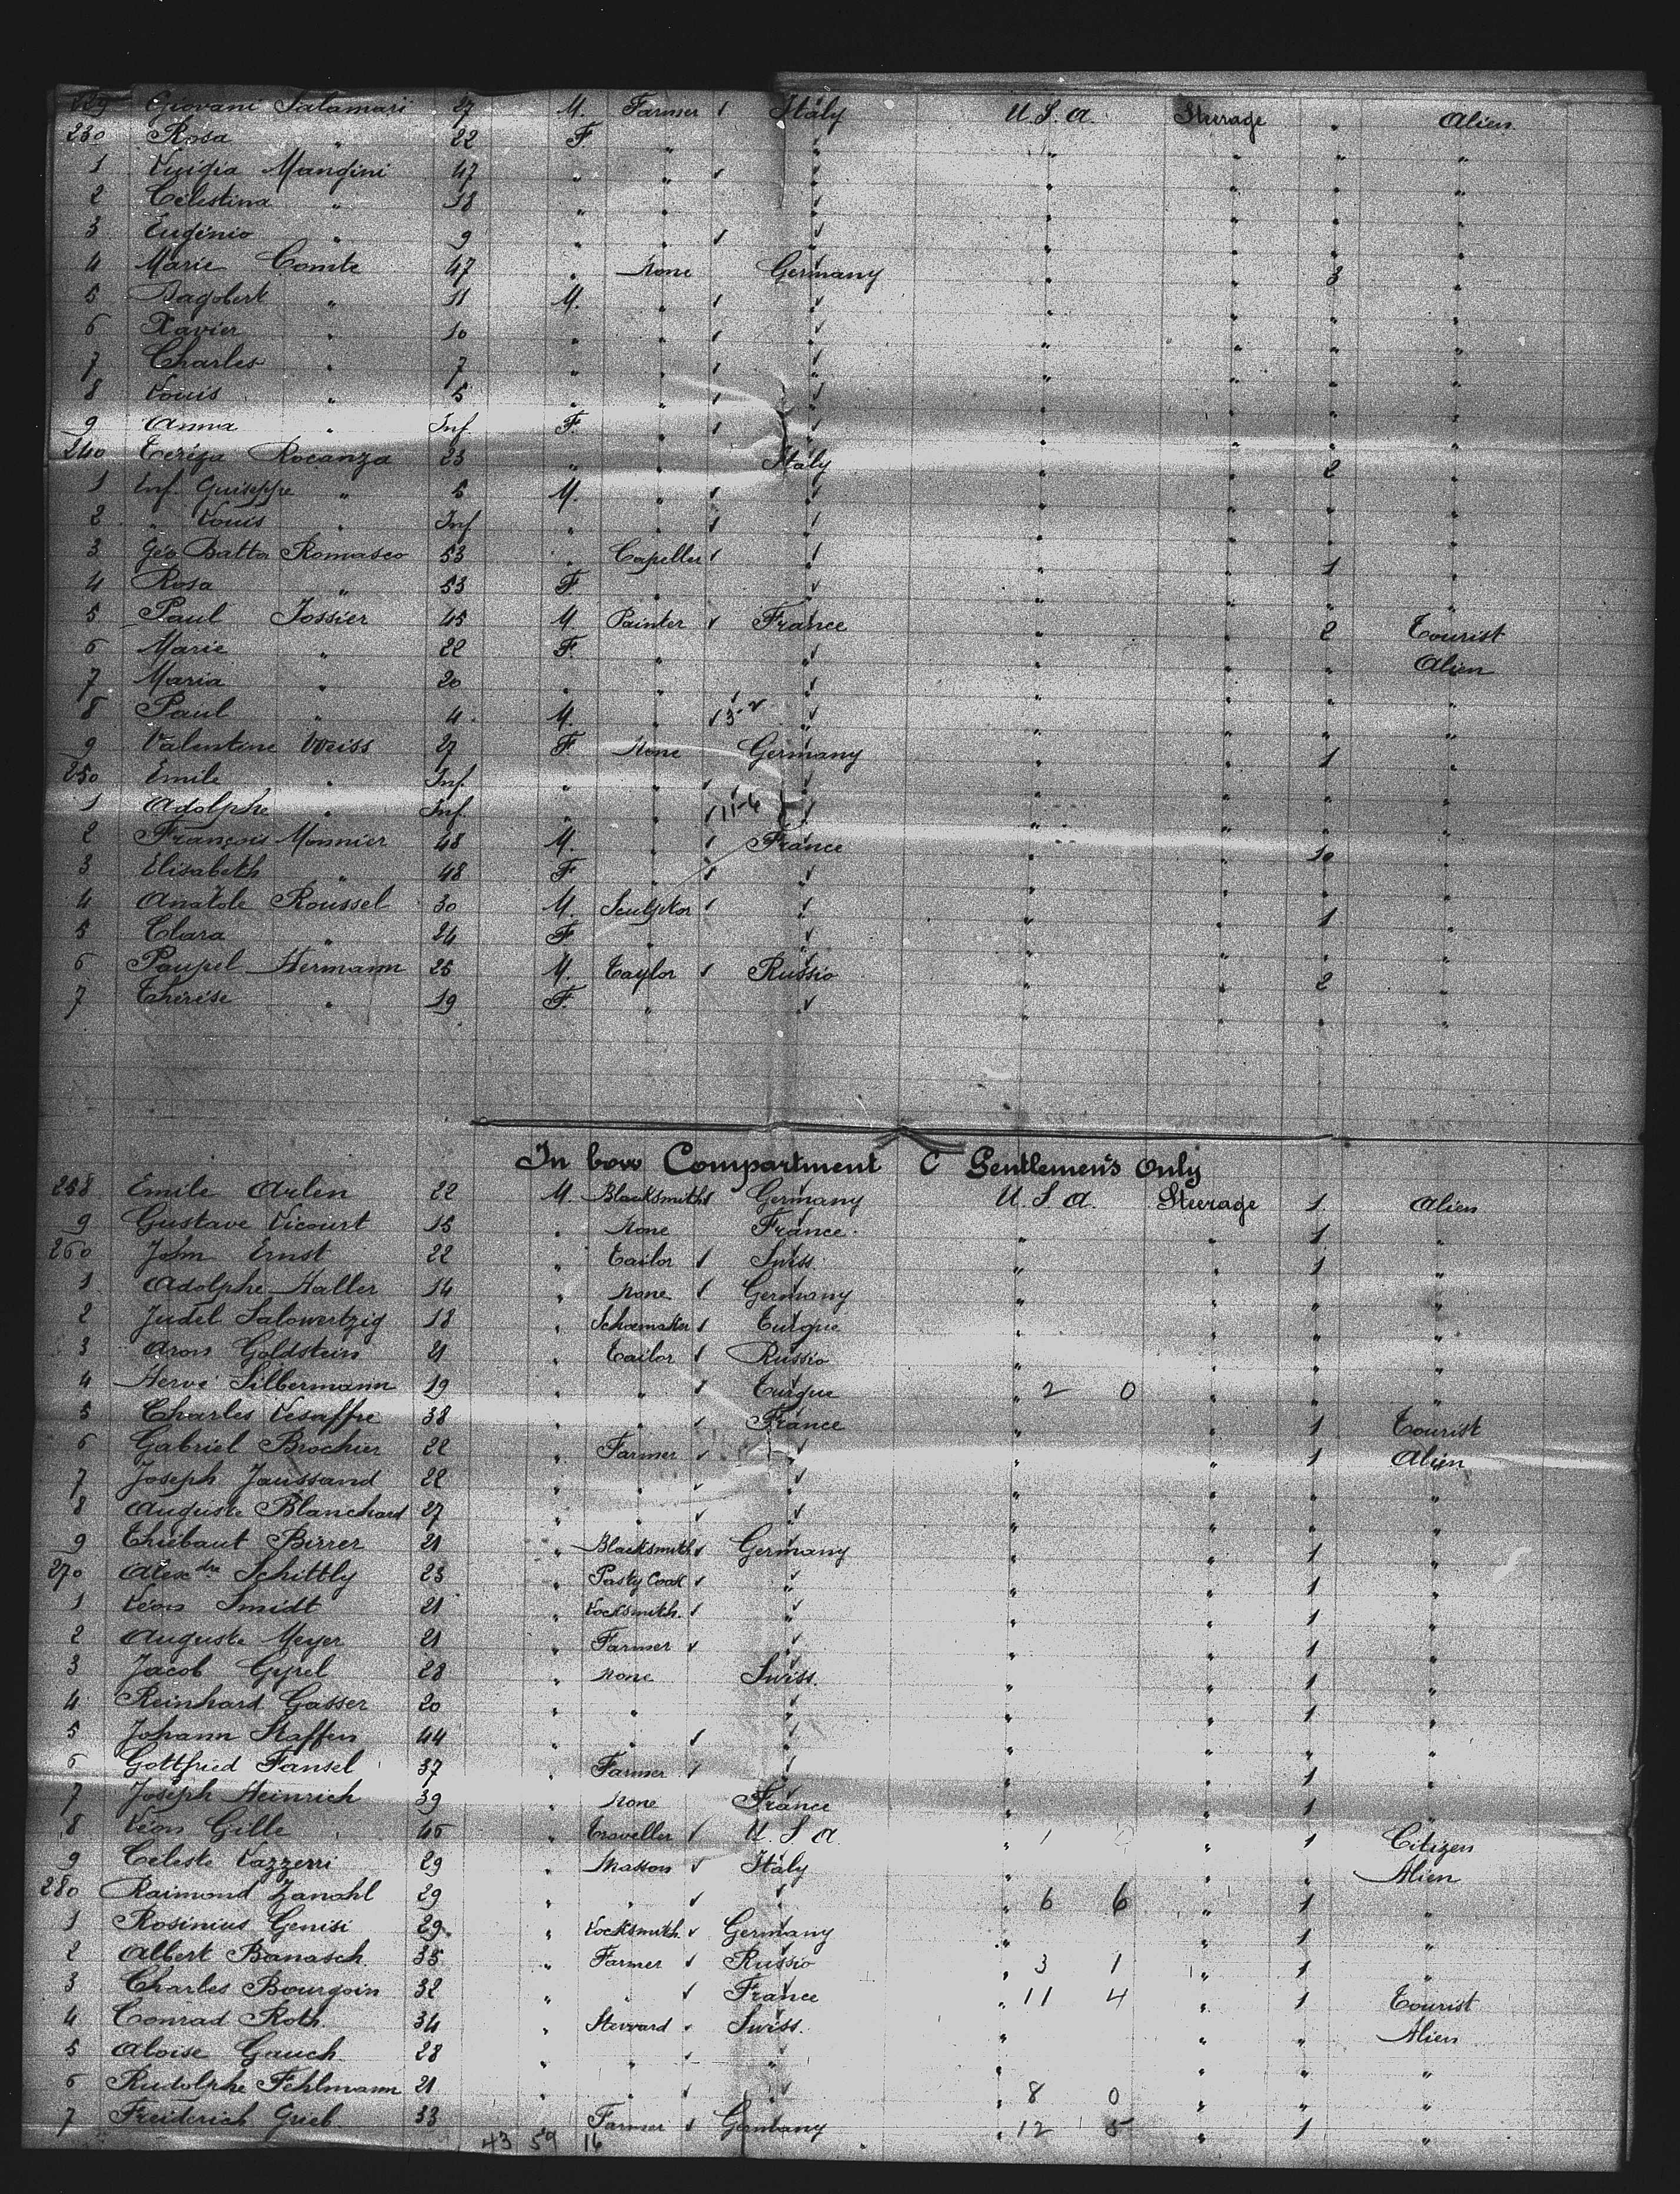 229 Giovani Salamari 27 M. Farmer Italy U.S.A. Steerage " Alien
230 Rosa " 22 F " " " " " "
1 Luigia Mangini 47 " " " " " " "
2 Célestina " 18 " " " " " " "
3 Eugénio " 9 " " " " " " "
4 Marie Comte 47 " None Germany " " 3 "
5 Dagobert " 11 M. " " " " " "
6 Xavier " 10 " " " " " " "
7 Charles " 7 " " " " " " "
8 Louis " 5 " " " " " " "
9 Anna " Inf. F. " " " " " "
240 Tèrèsa Rocanza 23 " " Italy " " 2 "
1 Enf. Guiseppe " 5 M. " " " " " "
2 " Louis " Inf " " " " " " "
3 Géo Batta Romasco 53 " Capeller " " " 1 "
4 Rosa " 53 F. " " " " " "
5 Paul Jossier 45 M. Painter France " " 2 Tourist
6 Marie " 22 F. " " " " " Alien
7 Maria " 20 " " " " " " "
8 Paul " 4. M. " 3- " " " " "
9 Valentine Weiss 27 F. None Germany " " 1 "
250 Emile " Inf. " " " " " " "
1 Adolphe " Inf. " " 11-6 " " " " "
2 François Monnier 48 M. " France " " 10 "
3 Elisabeth " 48 F " " " " " "
4 Anatole Roussel 30 M. Sculptor " " " 1 "
5 Clara " 24 F " " " " " "
6 Paupel Hermann 25 M. Taylor Russio " " 2 "
7 Thérèse " 19 F. " " " " " "
In bow Compartment C Gentlemen's Only
258 Emile Arlen 22 M. Blacksmiths Germany U.S.A. Steerage 1. Alien
9 Gustave Vicourt 15 " None France. " " 1 "
260 John Ernst 22 " Tailor Swiss. " " 1 "
1 Adolphe Haller 14 " None Germany " " " "
2 Judel Salowertzig 18 " Schoemaker Turque " " " "
3 Aron Goldstein 21 " Tailor Russio " " " "
4 Hervé Silbermann 19 " " Turque " 2 0 " " "
5 Charles Lesaffre 38 " " France " " 1 Tourist
6 Gabriel Brochier 22 " Farmer " " " 1 Alien
7 Joseph Jaussand 22 " " " " " " "
8 Auguste Blanchard 27 " " " " " " "
9 Thiébaut Birrer 21 " Blacksmith Germany " " 1 "
270 Alexdre Schittly 23 " Pasty Cook " " " 1 "
1 Léon Smidt 21 " Locksmith. " " " 1 "
2 Auguste Meyer 21 " Farmer " " " 1 "
3 Jacob Gysel 28 " None Swiss. " " 1 "
4 Reinhard Gasser 20 " " " " " 1 "
5 Johann Staffen 44 " " " " " " "
6 Gottfried Fansel 37 " Farmer " " " 1 "
7 Joseph Heinrich 39 " None France " " 1 "
8 Léon Gille 45 " Traveller U.S.A. " 1 0 " 1 Citizen
9 Celeste Lazzerri 29 " Masson Italy " " " Alien
280 Raimond Zanahl 29 " " " " 6 6 " 1 "
1 Rosinius Genisi 29. " Locksmith. Germany " " 1 "
2 Albert Banasch. 35 " Farmer Russio " 3 1 " 1 "
3 Charles Bourgoin 32 " " France " 11 4 " 1 Tourist
4 Conrad Roth. 34 " Steward Swiss. " " " Alien
5 Aloise Gauch. 28 " " " " " " "
6 Rudolphe Fehlmann 21 " " " 8 0 " " "
7 Freiderich Grieb 33 " Farmer Germany " 12 5 " 1 "
43 59 16